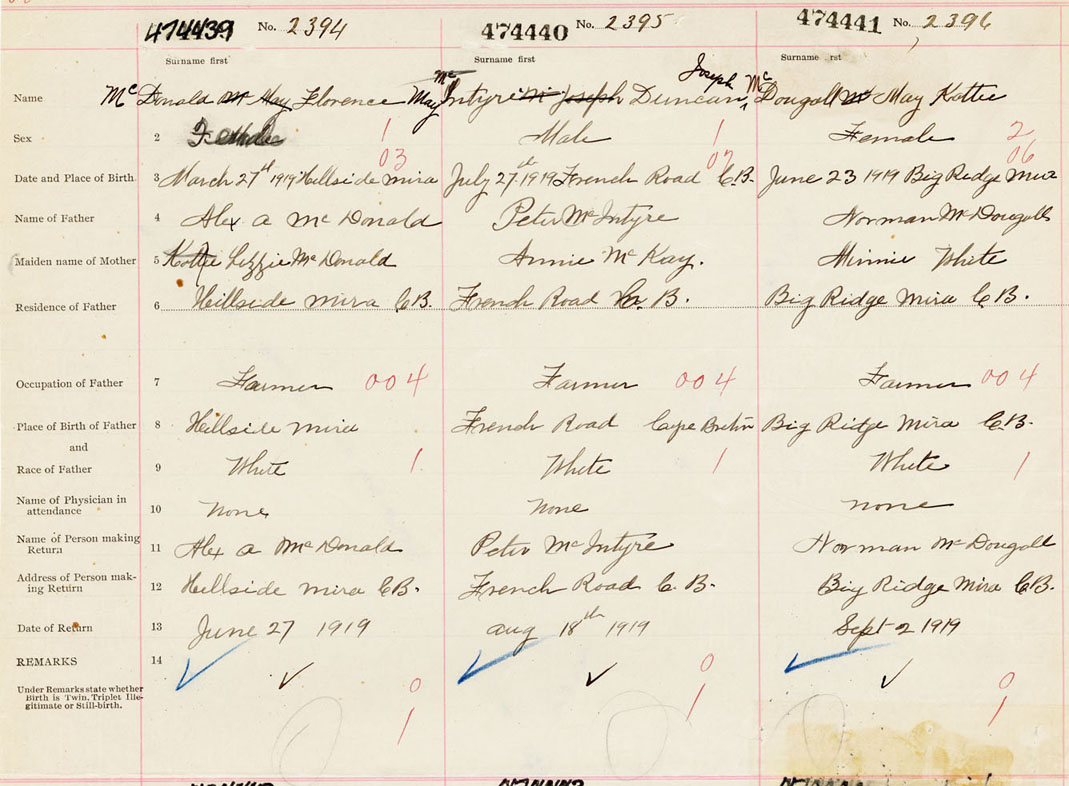 474439 No. 2394 474440 No. 2395 474441 No. 2396
Surname first Surname first Surname rst
Name Mc Donald May Florence May Mc Intyre Joseph Duncan Joseph Mc Dougall May Kattie
Sex 2 Female 1 Male 1 Female 2
03 07 06
Date and Place of Birth 3 March 27th 1919 Hillside Mira July 27th 1919 French Road C.B. June 23 1919 Big Ridge Mira
Name of Father 4 Alex A McDonald Peter McIntyre Norman McDougall
Maiden name of Mother 5 Lizzie McDonald Annie McKay. Minnie White
Residence of Father 6 Hillside Mira C.B. French Road B. Big Ridge Mira C.B.
Occupation of Father 7 Farmer 004 Farmer 004 Farmer 004
Place of Birth of Father 8 Hillside Mira French Road Cape Breton Big Ridge Mira C.B.
and
Race of Father 9 White 1 White 1 White 1
Name of Physician in
attendance 10 None None None
Name of Person making
Return 11 Alex A McDonald Peter McIntyre Norman McDougall
Address of Person mak-
ing Return 12 Hillside Mira C.B. French Road C.B. Big Ridge Mira C.B.
Date of Return 13 June 27 1919 Aug 18th 1919 Sept 2 1919
REMARKS 14
Under Remarks state whether 0 0 0
Birth is Twin, Triplet Ille-
gitimate or Still-birth. 1 1 1